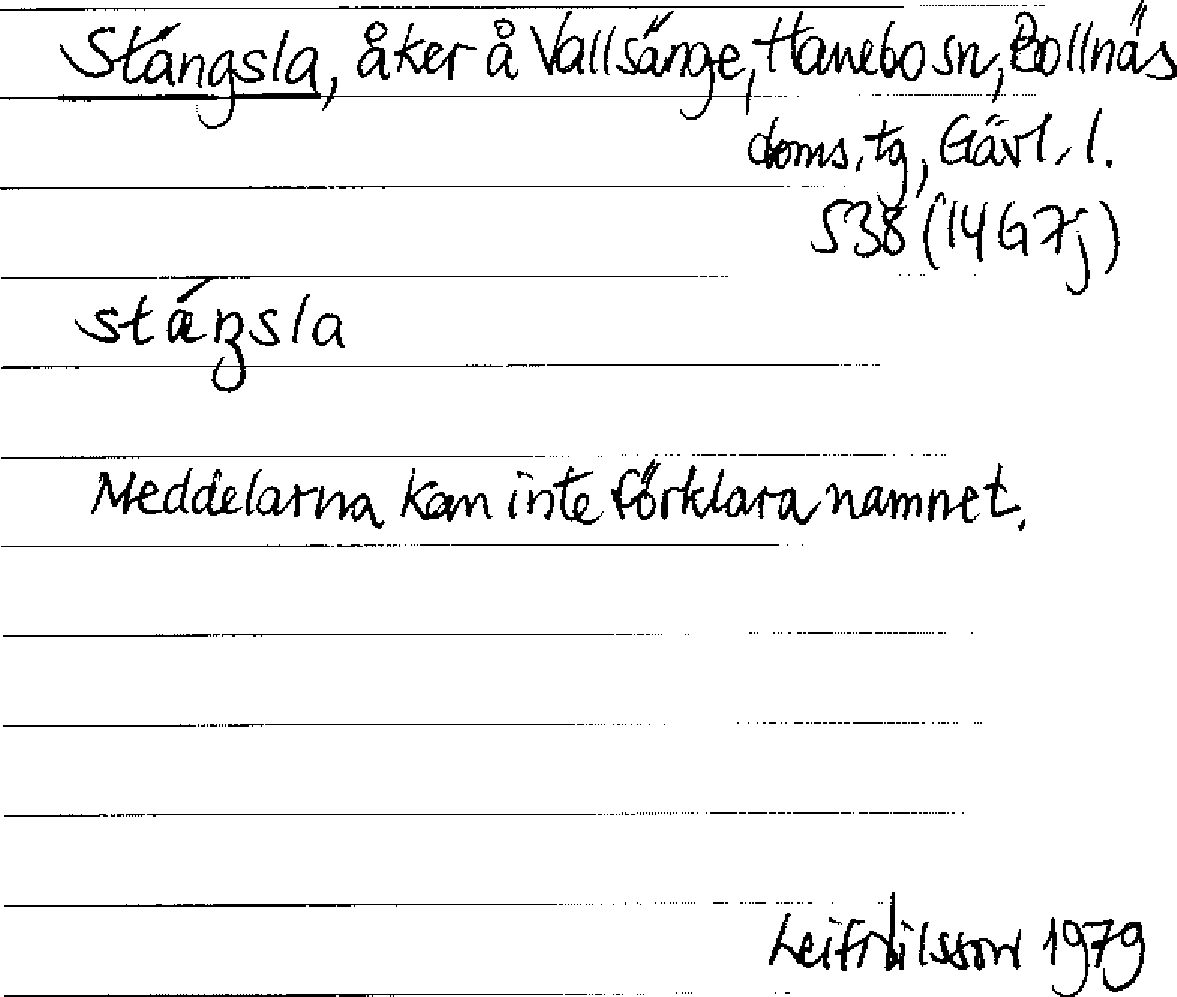 Stängsla, åker å Vallsänge, Hanebo sn, Bollnäs
doms.tg, Gävl. l.
538 (14G7j)
stáŋsla
Meddelarna kan inte förklara namnet.
Leif Nilsson 1979